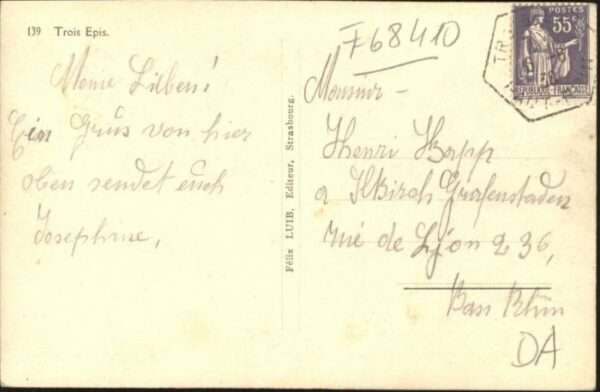 139 Trois Epis.
F68410
POSTES
55c
RÉPUBLIQUE FRANÇAISE
Meine Lieben!
Ein Grus von hier
oben sendet euch
Josephine,
Félix LUIB, Editeur, Strasbourg.
Monsieur –
Henri Happ
a Ilkirch Grafenstaden
rue de Lyon 236,
Bass Rhin
DA